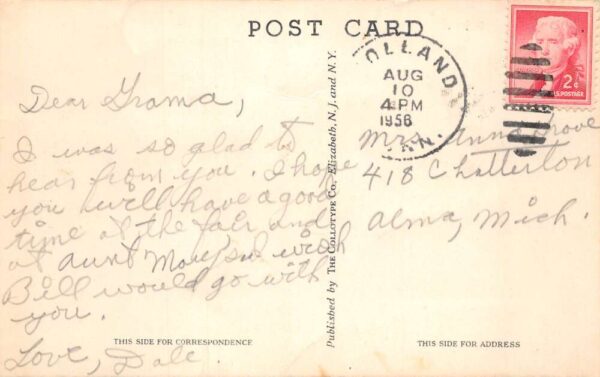 POST CARD
OLLAND
AUG
10
4 PM
1956
2¢
U.S. POSTAGE
Dear Grama,
I was so glad to
hear from you. I hope
you will have a good
time at the fair and
at aunt Mary's. I wish
Bill would go with
you.
Love, Dale.
THIS SIDE FOR CORRESPONDENCE
Published by THE COLLOTYPE Co., Elizabeth, N. J. and N. Y.
Mrs. Anna
418 Chatterton
Alma, Mich.
THIS SIDE FOR ADDRESS